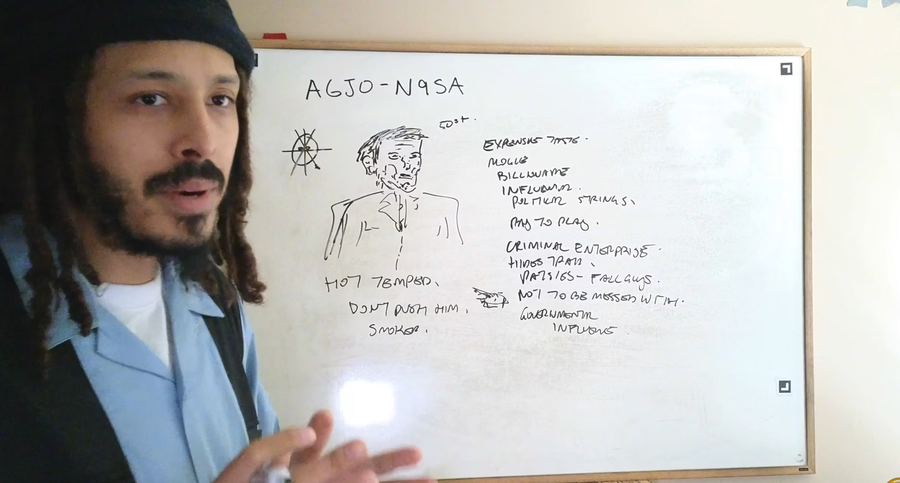 AGJO-N9SA
50st.
EXPENSIVE TASTE.
MOGUL
BILLIONAIRE
INFLUENTIAL.
POLITICAL STRINGS.
PAY TO PLAY.
CRIMINAL ENTERPRISE.
HIDES TRAIL.
PATSIES- FALL GUYS.
NOT TO BE MESSED WITH.
GOVERNMENTAL
INFLUENCE
HOT TEMPED.
DON'T PUSH HIM.
SMOKER.